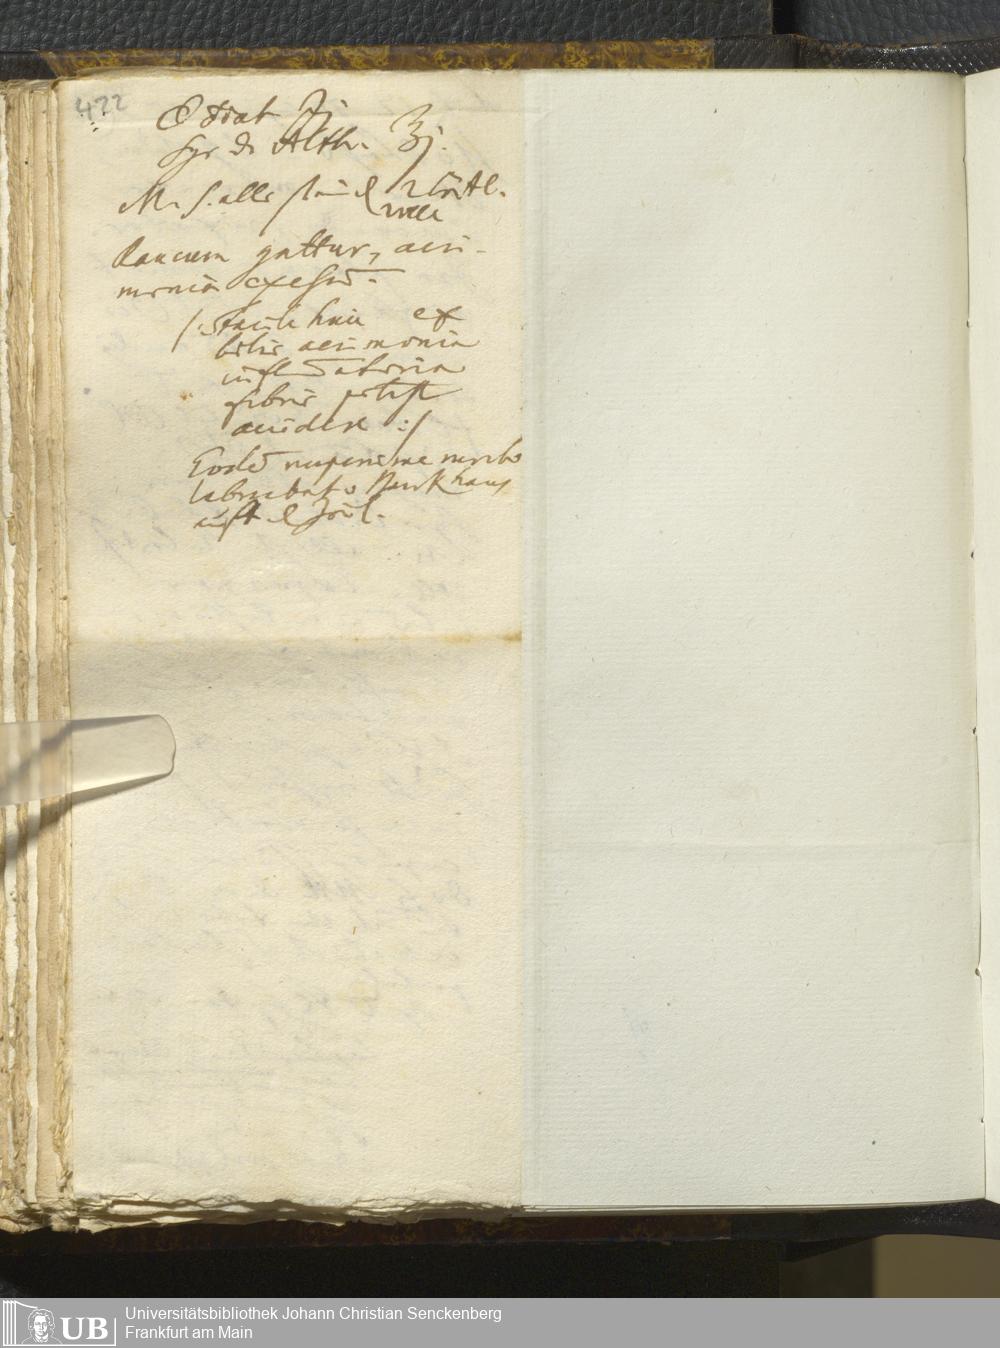 422
Syr de Alth. ℥j.
M. S. alle stund 2 löffl.
voll
Raucum guttur, acri-
monia exesũ.
/: Facile huic ex
bilis acrimonia
infl̄atoria
fibris potest
accidere :/
Eodẽ nuperrime morbo
laborabat
auft d Zeil.
Universitätsbibliothek Johann Christian Senckenberg
Frankfurt am Main
UB